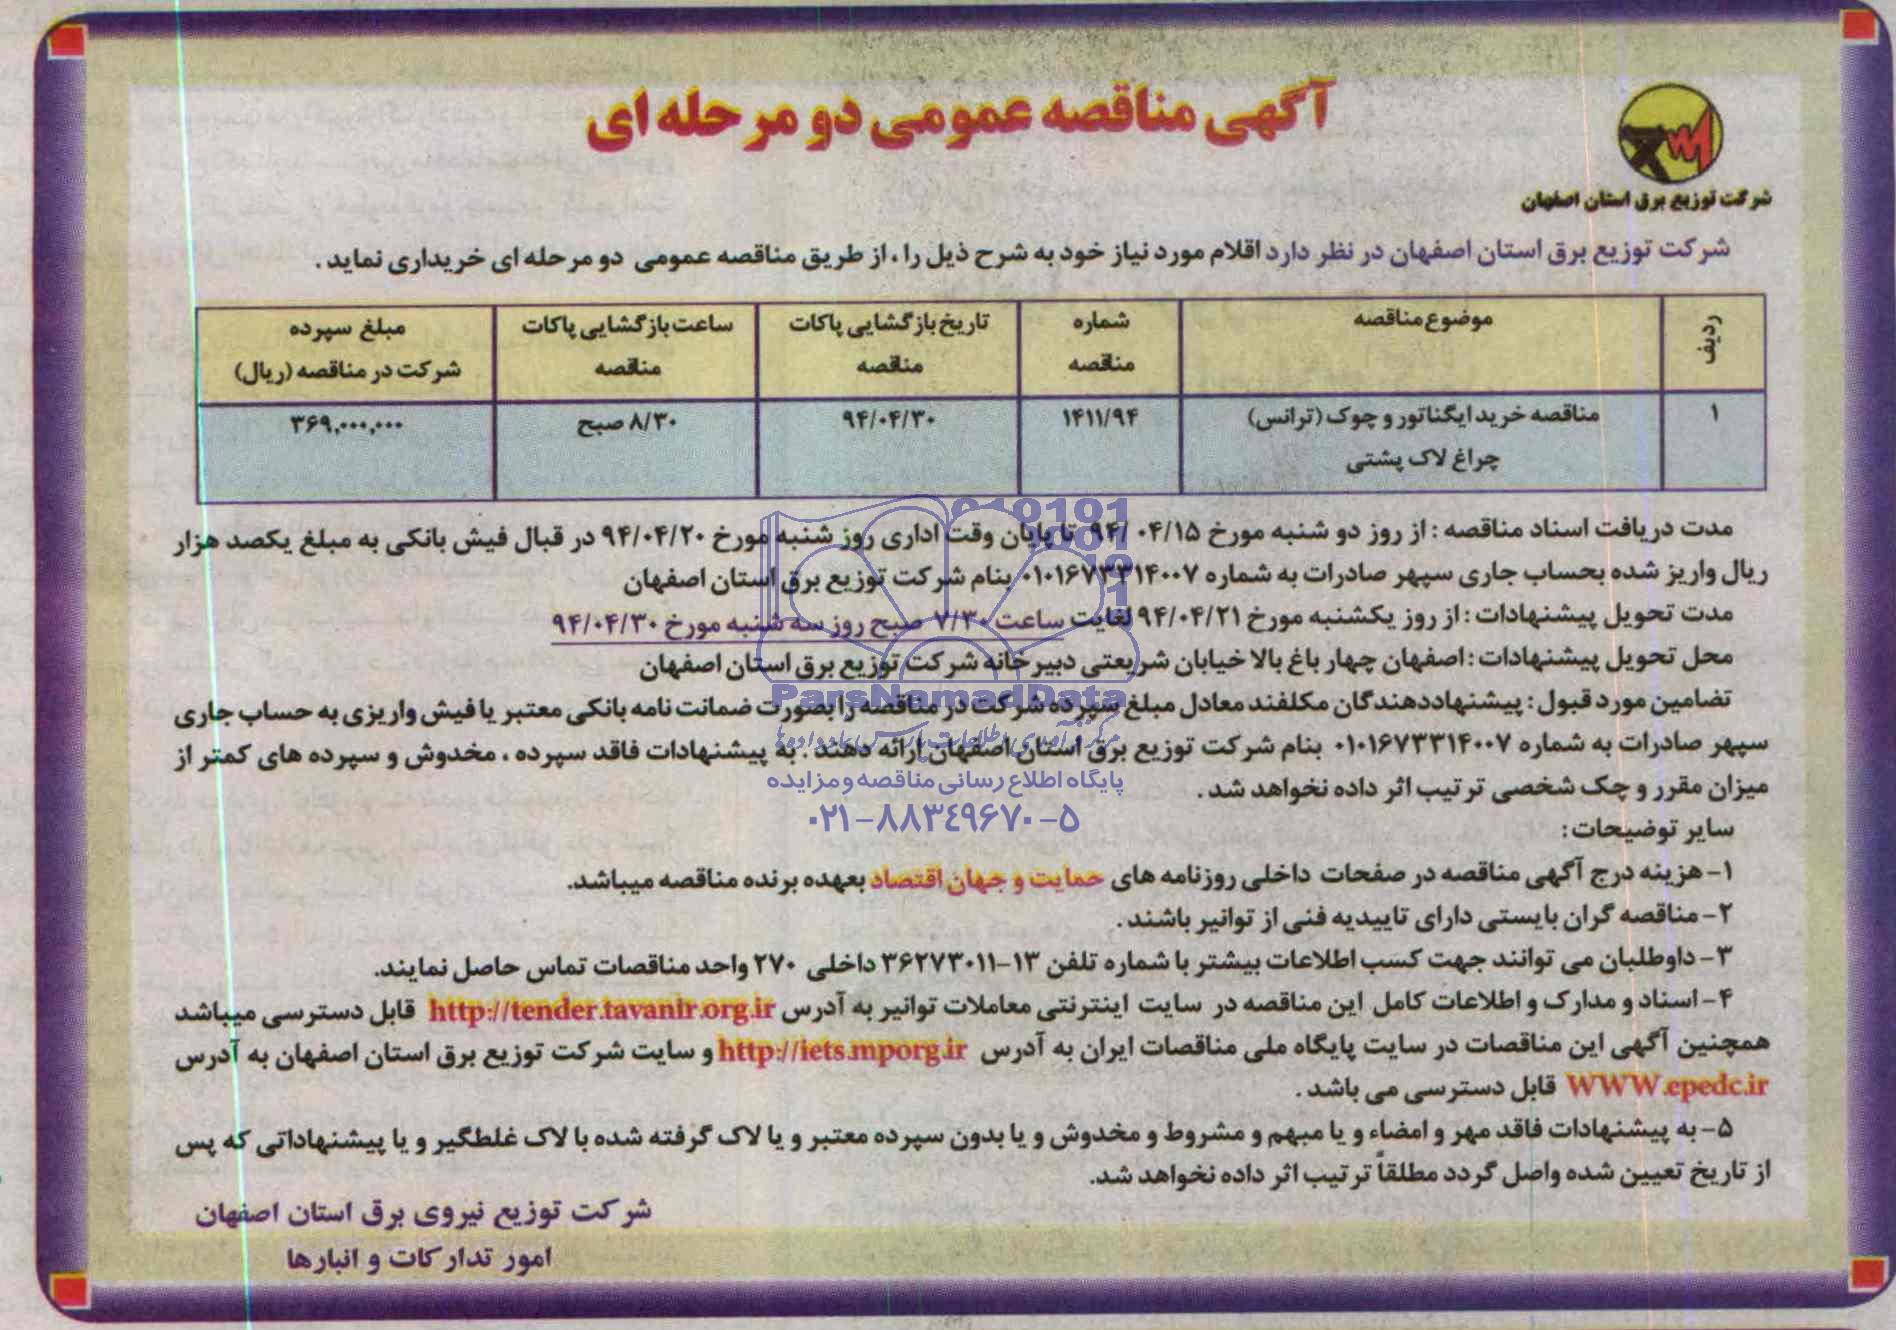 آگهی مناقصه عمومی دو مرحله ای
شرکت توزیع برق استان اصفهان
شرکت توزیع برق استان اصفهان در نظر دارد اقلام مورد نیاز خود به شرح ذیل را ، از طریق مناقصه عمومی دو مرحله ای خریداری نماید .
ردیف
موضوع مناقصه
شماره
مناقصه
تاریخ بازگشایی پاکات
مناقصه
ساعت بازگشایی پاکات
مناقصه
مبلغ سپرده
شرکت در مناقصه (ریال)
۱
مناقصه خرید ایگناتور و چوک (ترانس)
چراغ لاک پشتی
۱۴۱۱/۹۴
۹۴/۰۴/۳۰
۸/۳۰ صبح
۳۶۹,۰۰۰,۰۰۰
مدت دریافت اسناد مناقصه : از روز دو شنبه مورخ ۹۴/ ۰۴/۱۵ تا پایان وقت اداری روز شنبه مورخ ۹۴/۰۴/۲۰ در قبال فیش بانکی به مبلغ یکصد هزار
ریال واریز شده بحساب جاری سپهر صادرات به شماره ۰۱۰۱۶۷۳۳۱۴۰۰۷ بنام شرکت توزیع برق استان اصفهان
مدت تحویل پیشنهادات : از روز یکشنبه مورخ ۹۴/۰۴/۲۱ لغایت ساعت ۷/۳۰ صبح روز سه شنبه مورخ ۹۴/۰۴/۳۰
محل تحویل پیشنهادات : اصفهان چهار باغ بالا خیابان شریعتی دبیرخانه شرکت توزیع برق استان اصفهان
تضامین مورد قبول : پیشنهاددهندگان مکلفند معادل مبلغ سپرده شرکت در مناقصه را بصورت ضمانت نامه بانکی معتبر یا فیش واریزی به حساب جاری
سپهر صادرات به شماره ۰۱۰۱۶۷۳۳۱۴۰۰۷ بنام شرکت توزیع برق استان اصفهان ارائه دهند . به پیشنهادات فاقد سپرده ، مخدوش و سپرده های کمتر از
میزان مقرر و چک شخصی ترتیب اثر داده نخواهد شد .
سایر توضیحات :
۱- هزینه درج آگهی مناقصه در صفحات داخلی روزنامه های حمایت و جهان اقتصاد بعهده برنده مناقصه میباشد.
۲- مناقصه گران بایستی دارای تاییدیه فنی از توانیر باشند .
۳- داوطلبان می توانند جهت کسب اطلاعات بیشتر با شماره تلفن ۱۳-۳۶۲۷۳۰۱۱ داخلی ۲۷۰ واحد مناقصات تماس حاصل نمایند.
۴- اسناد و مدارک و اطلاعات کامل این مناقصه در سایت اینترنتی معاملات توانیر به آدرس http://tender.tavanir.org.ir قابل دسترسی میباشد
همچنین آگهی این مناقصات در سایت پایگاه ملی مناقصات ایران به آدرس http://iets.mporg.ir و سایت شرکت توزیع برق استان اصفهان به آدرس
WWW.epedc.ir قابل دسترسی می باشد .
۵- به پیشنهادات فاقد مهر و امضاء و یا مبهم و مشروط و مخدوش و یا بدون سپرده معتبر و یا لاک گرفته شده با لاک غلطگیر و یا پیشنهاداتی که پس
از تاریخ تعیین شده واصل گردد مطلقاً ترتیب اثر داده نخواهد شد.
شرکت توزیع نیروی برق استان اصفهان
امور تدارکات و انبارها
ParsNamadData
پایگاه اطلاع رسانی مناقصه و مزایده
۰۲۱-۸۸۳۴۹۶۷۰-۵